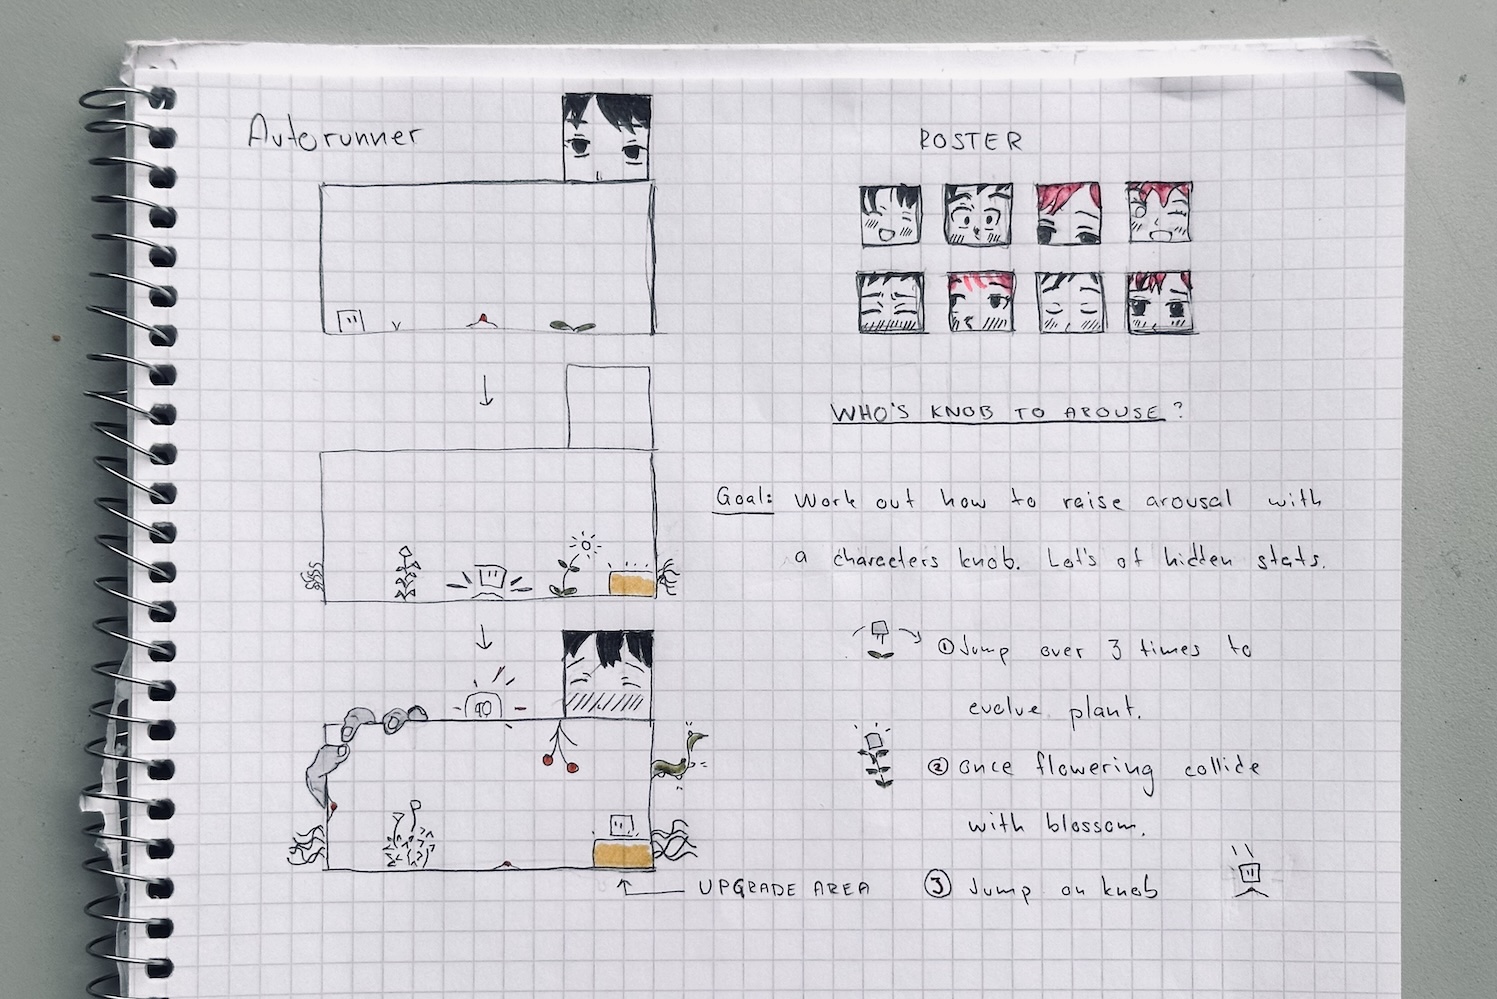 Autorunner
ROSTER
WHO'S KNOB TO AROUSE?
Goal: Work out how to raise arousal with
a characters knob. Lot's of hidden stats.
① Jump over 3 times to
evolve plant.
② once flowering collide
with blossom.
③ Jump on knob
UPGRADE AREA